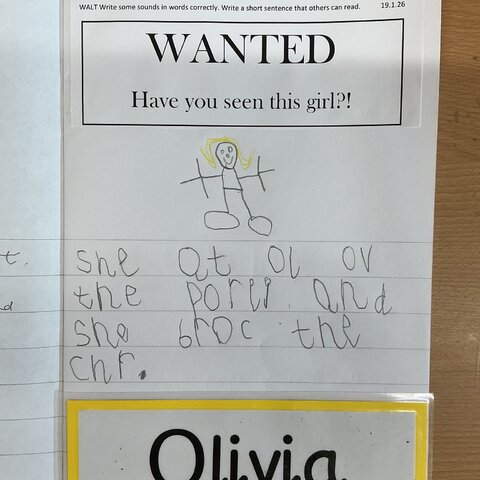 WALT Write some sounds in words correctly. Write a short sentence that others can read. 19.1.26
WANTED
Have you seen this girl?!
she at ol ov
the porij. and
she broc the
chr.
Olivia